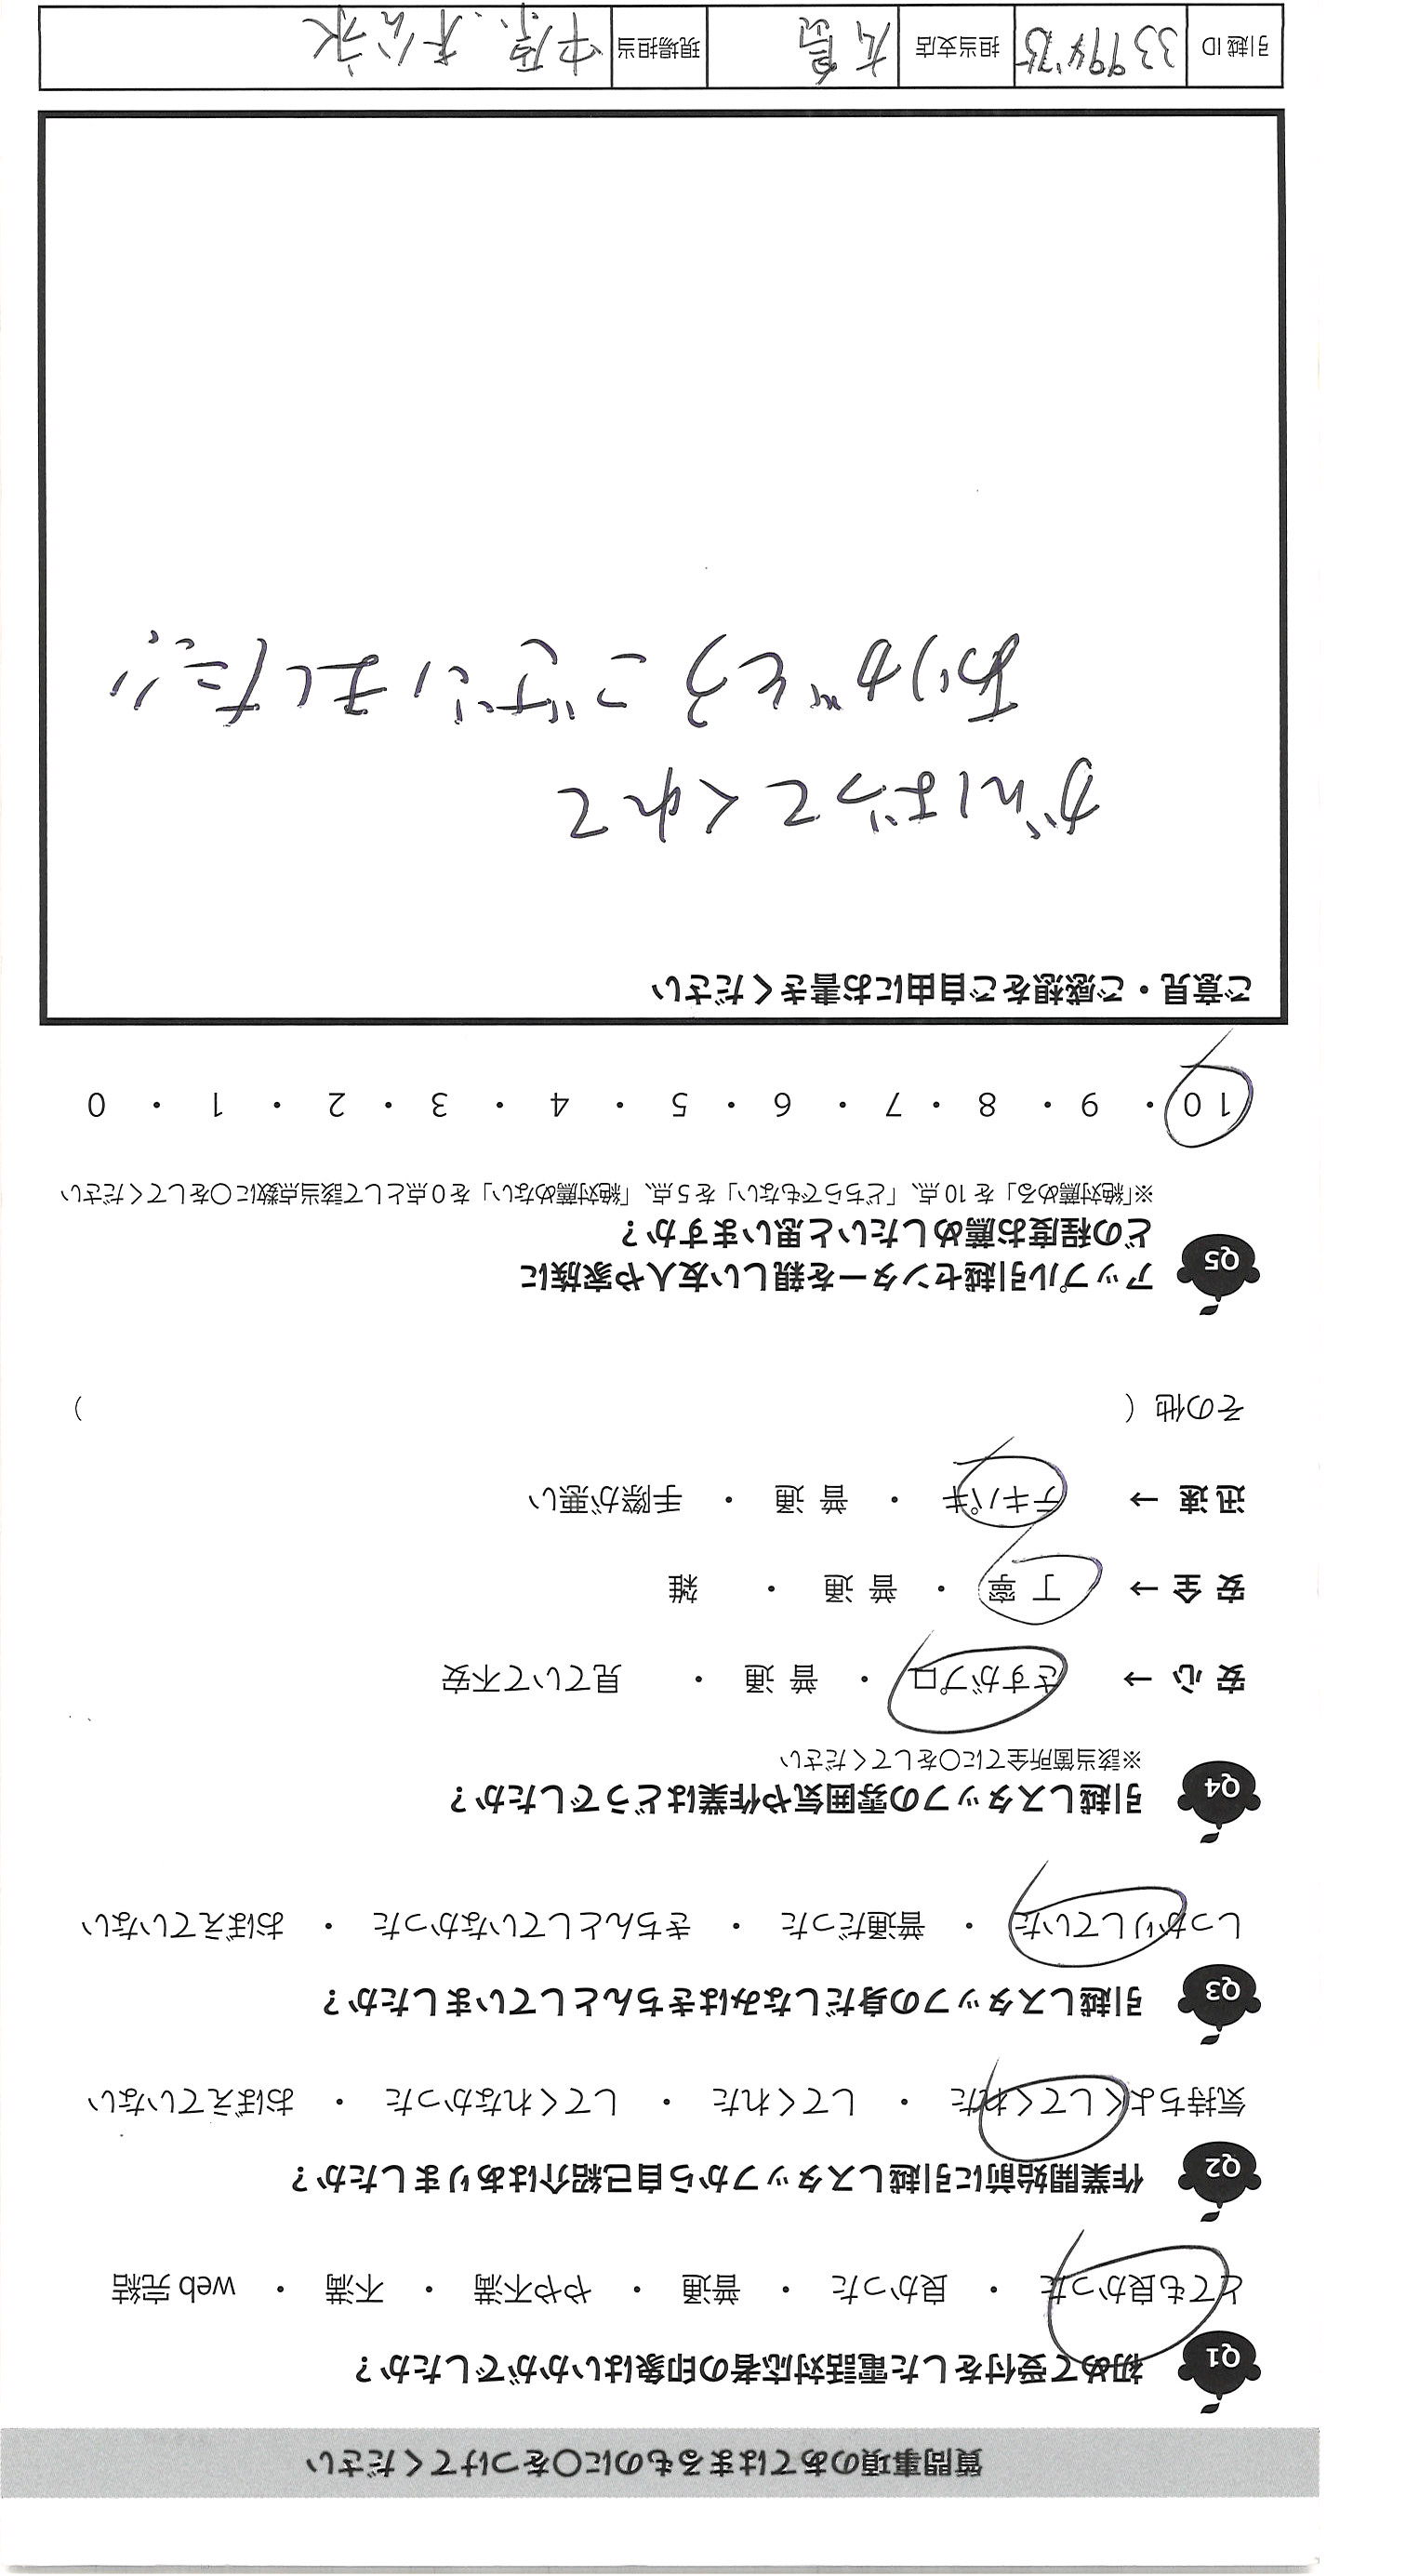 質問事項のあてはまるものに○をつけてください
Q1 初めて受付をした電話対応者の印象はいかがでしたか？
とても良かった ・ 良かった ・ 普通 ・ やや不満 ・ 不満 ・ web 完結
Q2 作業開始前に引越しスタッフから自己紹介はありましたか？
気持ちよくしてくれた ・ してくれた ・ してくれなかった ・ おぼえていない
Q3 引越しスタッフの身だしなみはきちんとしていましたか？
しっかりしていた ・ 普通だった ・ きちんとしていなかった ・ おぼえていない
Q4 引越しスタッフの雰囲気や作業はどうでしたか？
※該当箇所全てに○をしてください
安 心 → さすがプロ ・ 普 通 ・ 見ていて不安
安 全 → 丁 寧 ・ 普 通 ・ 雑
迅 速 → テキパキ ・ 普 通 ・ 手際が悪い
その他 （ ）
Q5 アップル引越センターを親しい友人や家族に
どの程度お薦めしたいと思いますか？
※「絶対薦める」を 10 点、「どちらでもない」を 5 点、「絶対薦めない」を 0 点として該当点数に○をしてください
10 ・ 9 ・ 8 ・ 7 ・ 6 ・ 5 ・ 4 ・ 3 ・ 2 ・ 1 ・ 0
ご意見・ご感想をご自由にお書きください
がんばってくれて
ありがとうございました!!
引越 ID 担当支店 現場担当 中原、松永